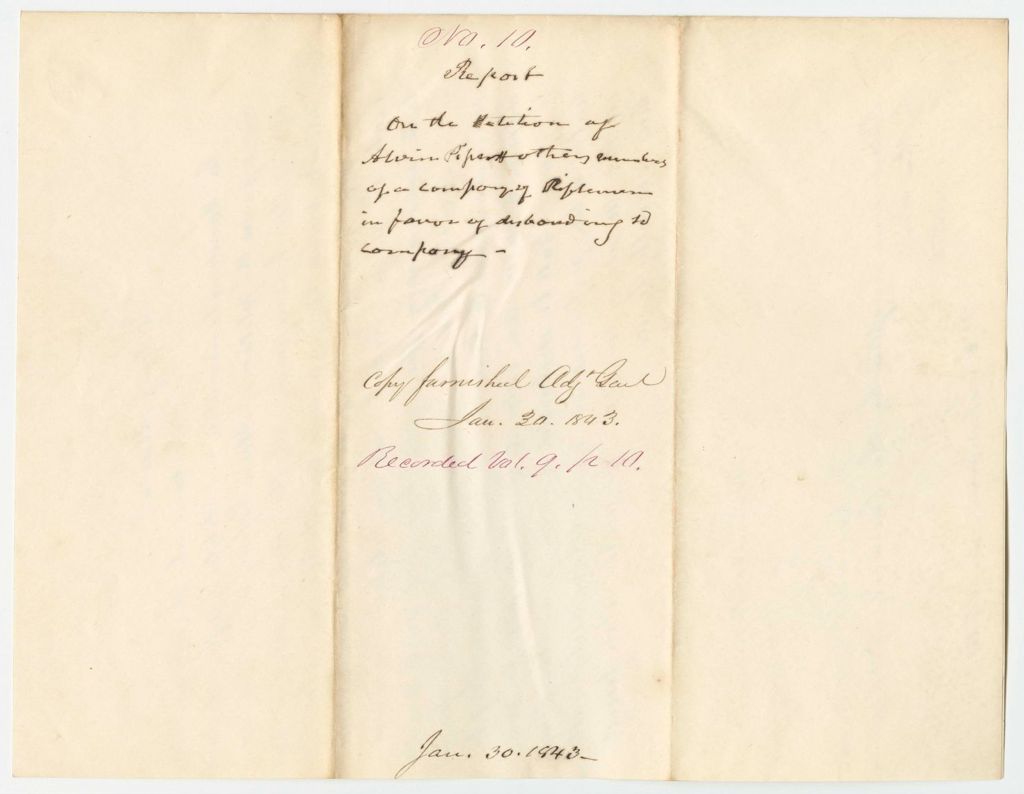 No. 10.
Report
On the Petition of
Alvin Piper & others members
of a company of Riflemen
in favor of disbanding sd
company -
Copy furnished Adjt Genl
Jan. 30. 1843.
Recorded Vol. 9. p 10.
Jan. 30. 1843-